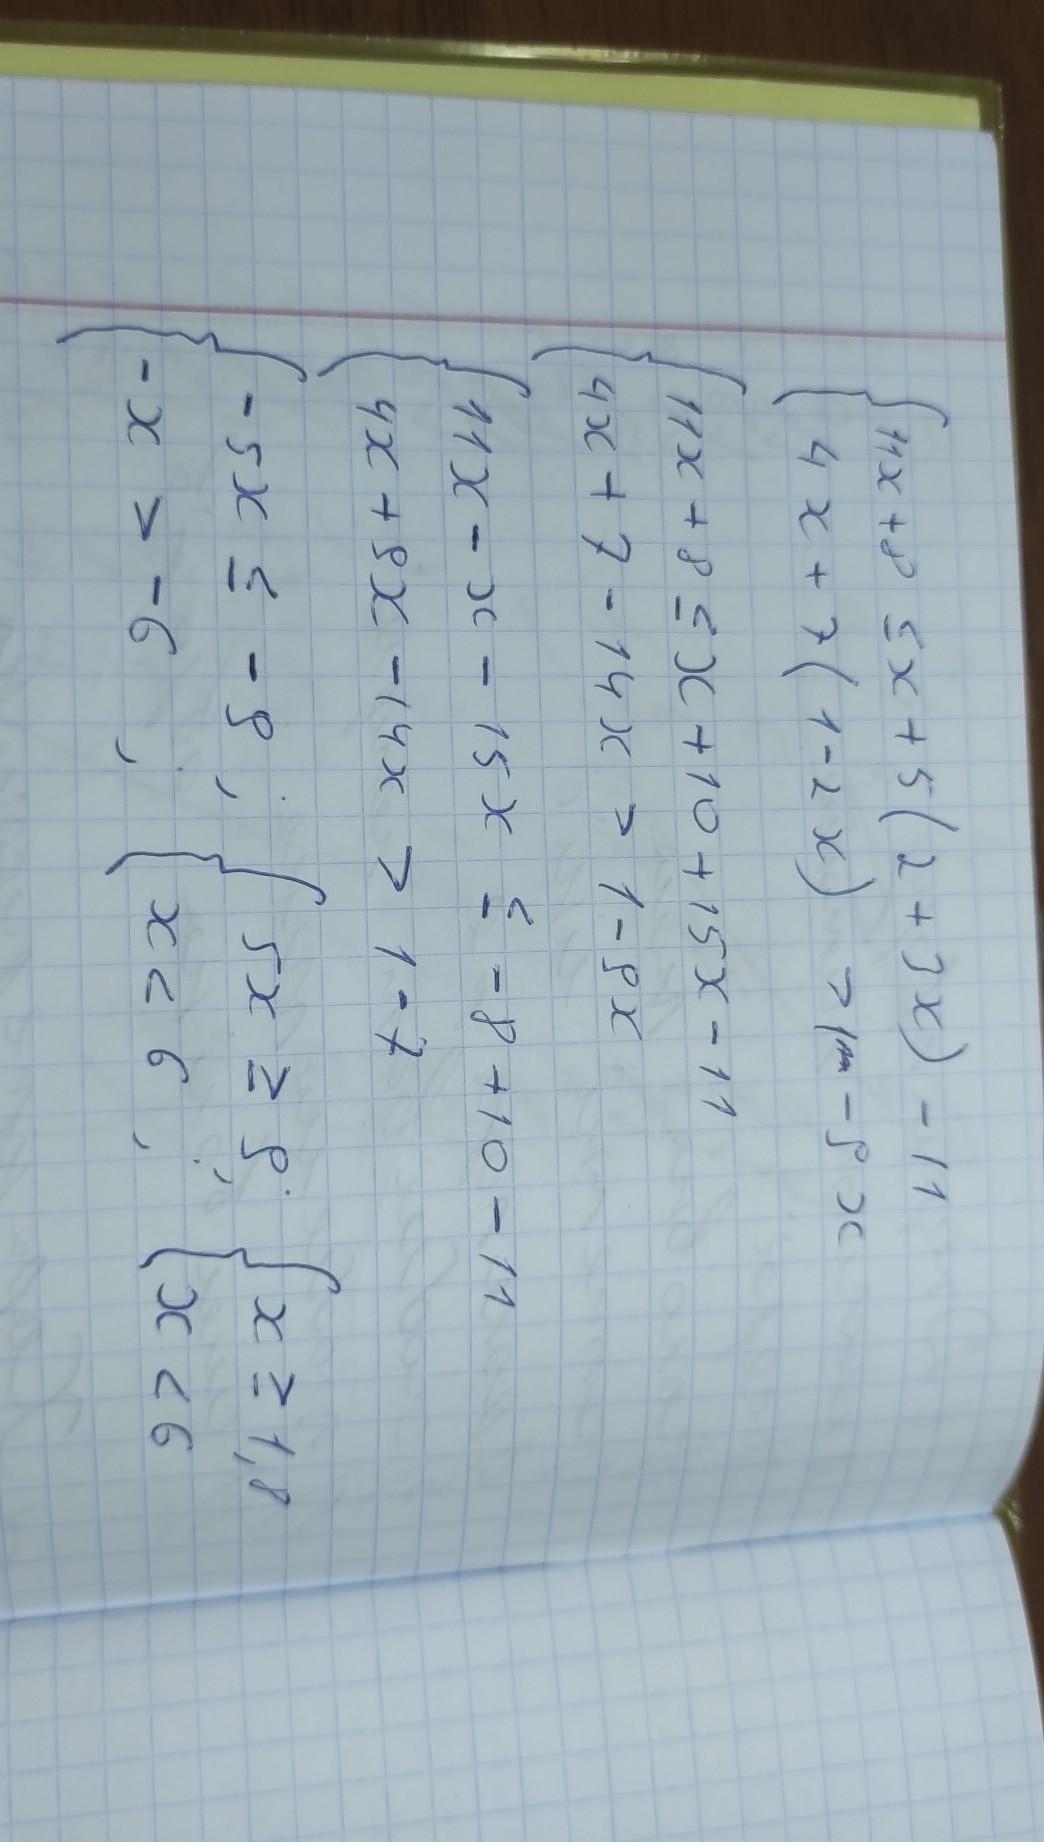 { 11x+8 ≤ x+5(2+3x) - 11
4x+7(1-2x) < 1 - 9x
{ 11x+8 ≤ x+10+15x-11
4x+7-14x < 1-9x
{ 11x-x-15x ≤ -8+10-11
4x+9x-14x < 1-7
{ -5x ≤ -9 ; { 5x ≥ 9 ; { x ≥ 1,8
-x < -6 ; x > 6 ; x > 6